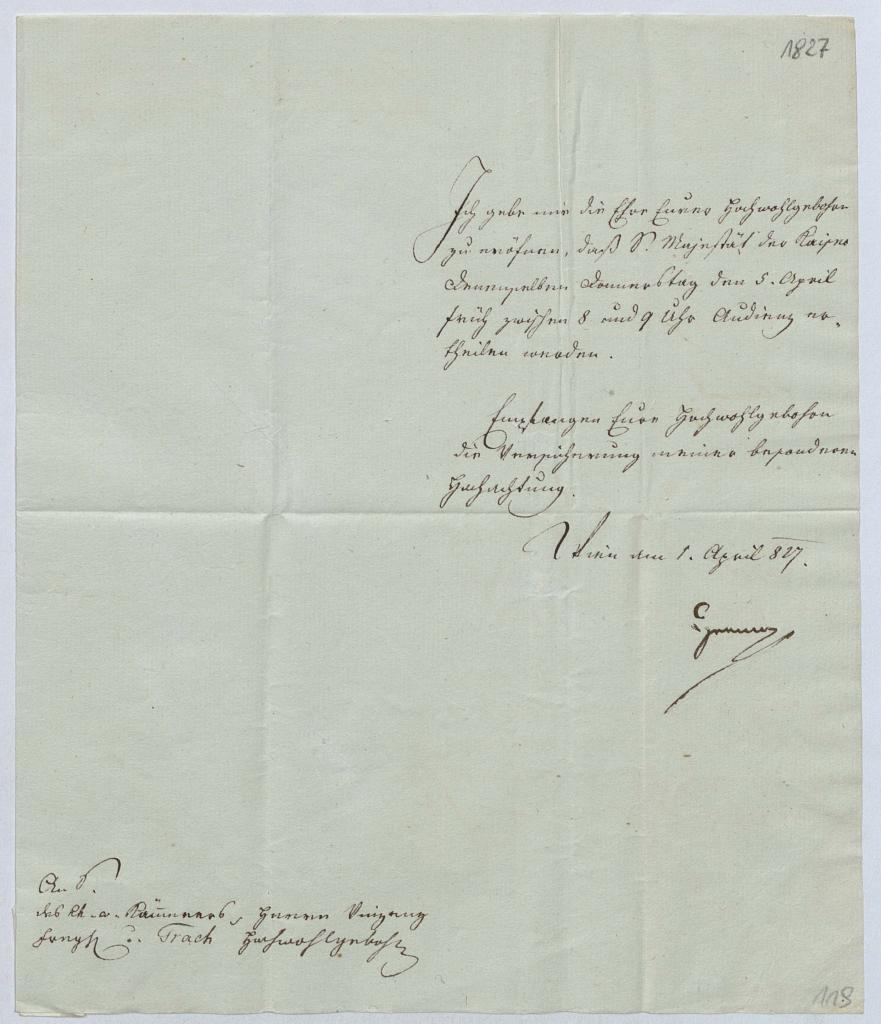 1827
Ich gebe mir die Ehre Euer Hochwohlgebohrn
zu eröfnen, daß Sr. Majestät der Kaiser
Denenselben Donnerstag den 5. April
früh zwischen 8 und 9 Uhr Audienz er-
theilen werden.
Empfangen Eure Hochwohlgebohrn
die Versicherung meiner besonderen
Hochachtung.
Wien am 1. April 827.
An S.
des kk. Kämmerers, Herrn Vinzenz
Trach Hochwohlgeb
118